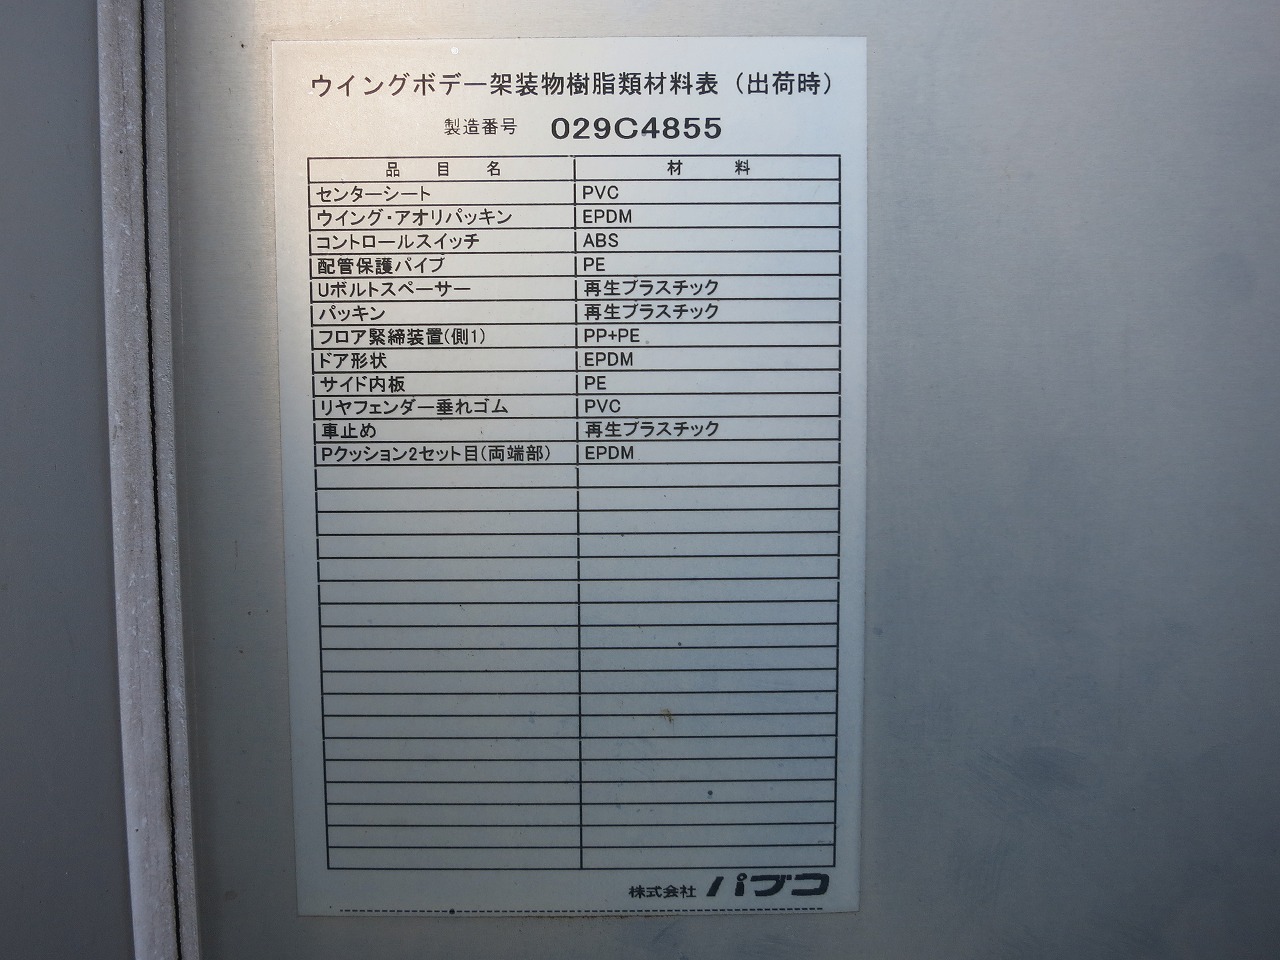 ウイングボデー架装物樹脂類材料表（出荷時）
製造番号 029C4855
品目名 材料
センターシート PVC
ウイング・アオリパッキン EPDM
コントロールスイッチ ABS
配管保護パイプ PE
Uボルトスペーサー 再生プラスチック
パッキン 再生プラスチック
フロア緊締装置(側1) PP+PE
ドア形状 EPDM
サイド内板 PE
リヤフェンダー垂れゴム PVC
車止め 再生プラスチック
Pクッション2セット目(両端部) EPDM
株式会社 パブコ